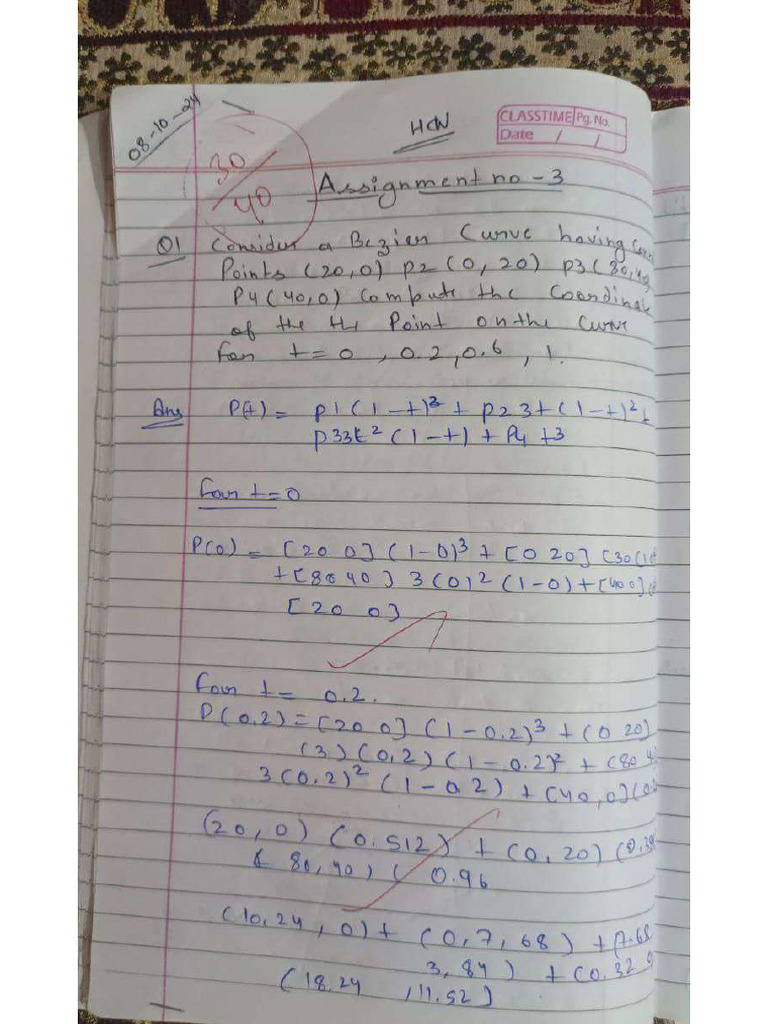 08-10-24
HCW
CLASSTIME Pg. No.
Date / /
30/40
Assignment no - 3
Q1 Consider a Bezier Curve having
Points (20,0) p2 (0, 20) p3 (80,40)
P4 (40,0) Compute the Coordinate
of the Point on the Curve
For t = 0, 0.2, 0.6, 1.
Ans P(t) = p1 (1-t)³ + p2 3t (1-t)² +
p3 3t² (1-t) + P4 t3
For t = 0
P(0) = [20 0] (1-0)³ + [0 20] [30(1
+ [80 40] 3(0)² (1-0) + [40 0]
[20 0]
For t = 0.2.
P(0.2) = [20 0] (1-0.2)³ + (0 20)
(3)(0.2)(1-0.2)² + (80 4
3(0.2)² (1-0.2) + [40,0] (0.
(20, 0) (0.512) + (0, 20) (0.38
( 80, 40) ( 0.96
(10.24, 0) + (0, 7, 68) + 7.68
3, 84) + (0.32
(18.24 , 11.52]